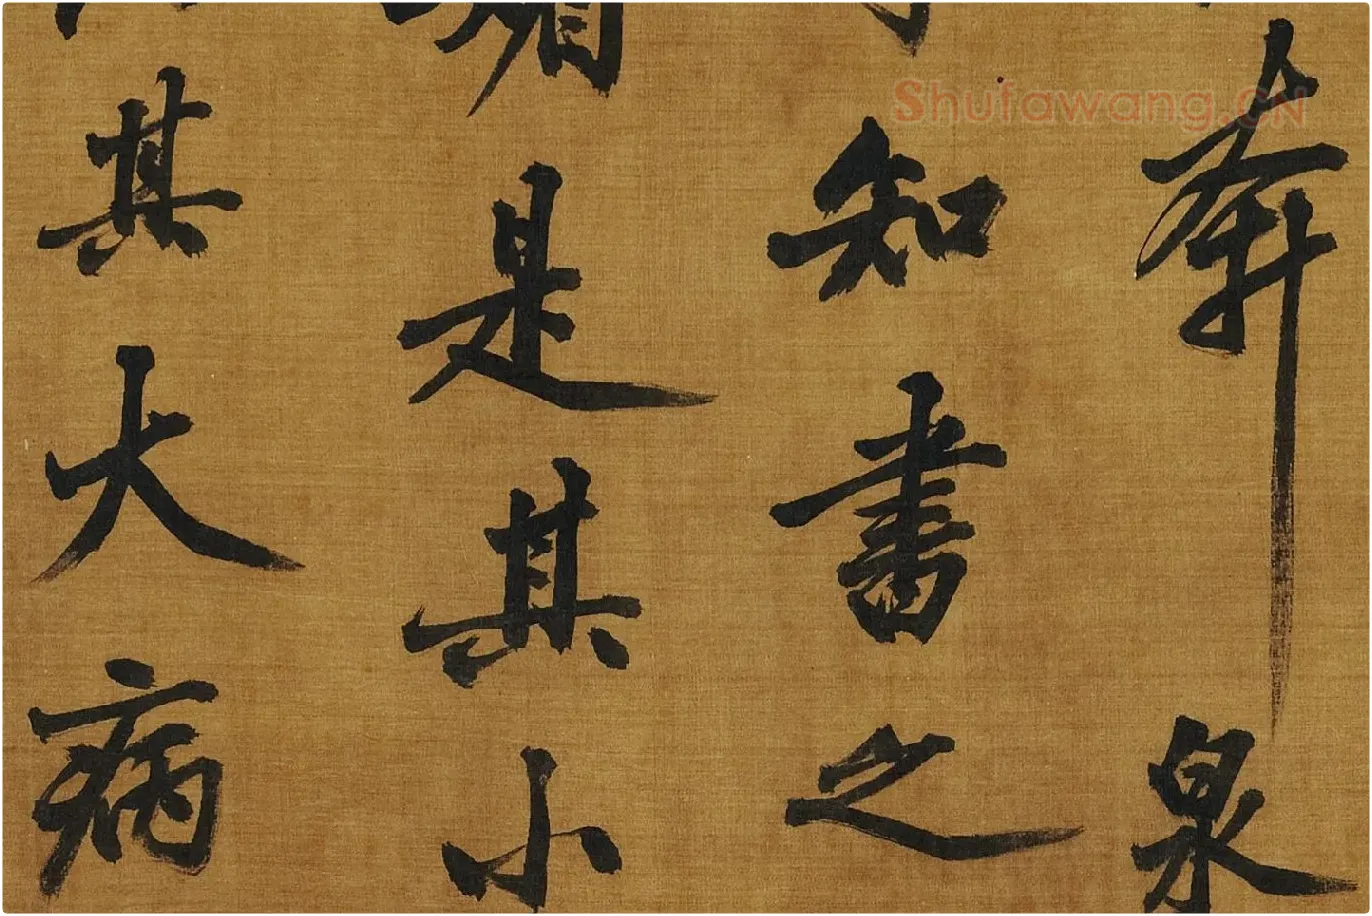 奔泉
知書之
是其小
其大病
Shufawang.CN